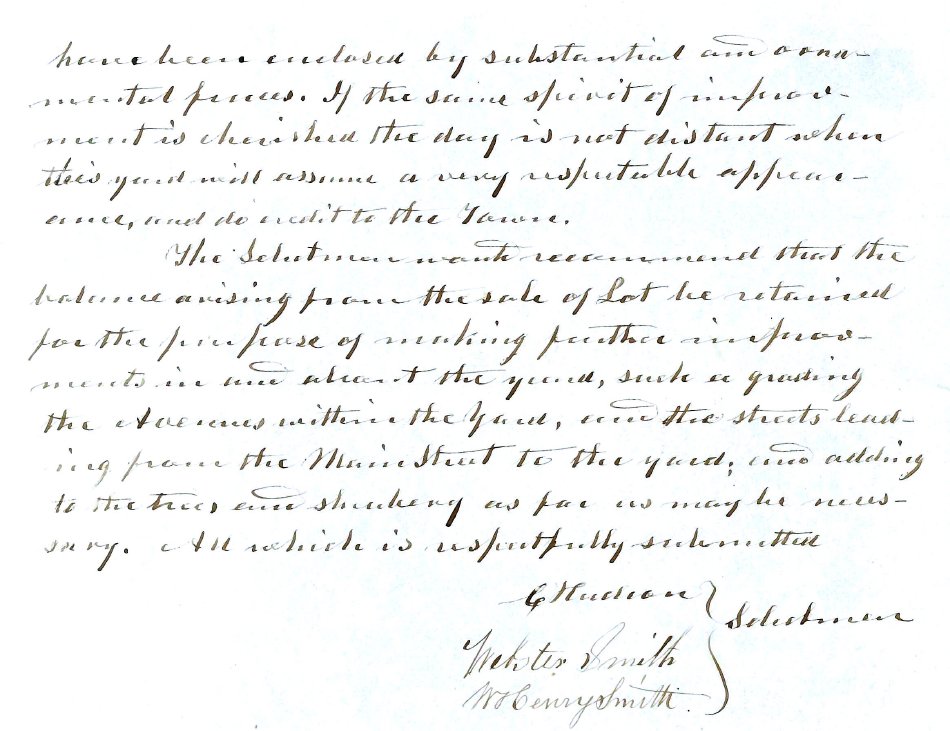 have been enclosed by substantial and orna-
mental fences. If the same spirit of improv-
ment is cherished the day is not distant when
this yard will assume a very respectable appear-
ance, and do credit to the Town.
The Selectmen would recommend that the
balance arising from the sale of Lot be retained
for the purpose of making further improv-
ments in and about the yard, such a grading
the Avenues within the Yard, and the streets lead-
ing from the Main Street to the yard; and adding
to the trees and shrubery as far as may be neces-
sary. All which is respectfully submitted
C Hudson
Webster Smith
Wm Henry Smith
Selectmen